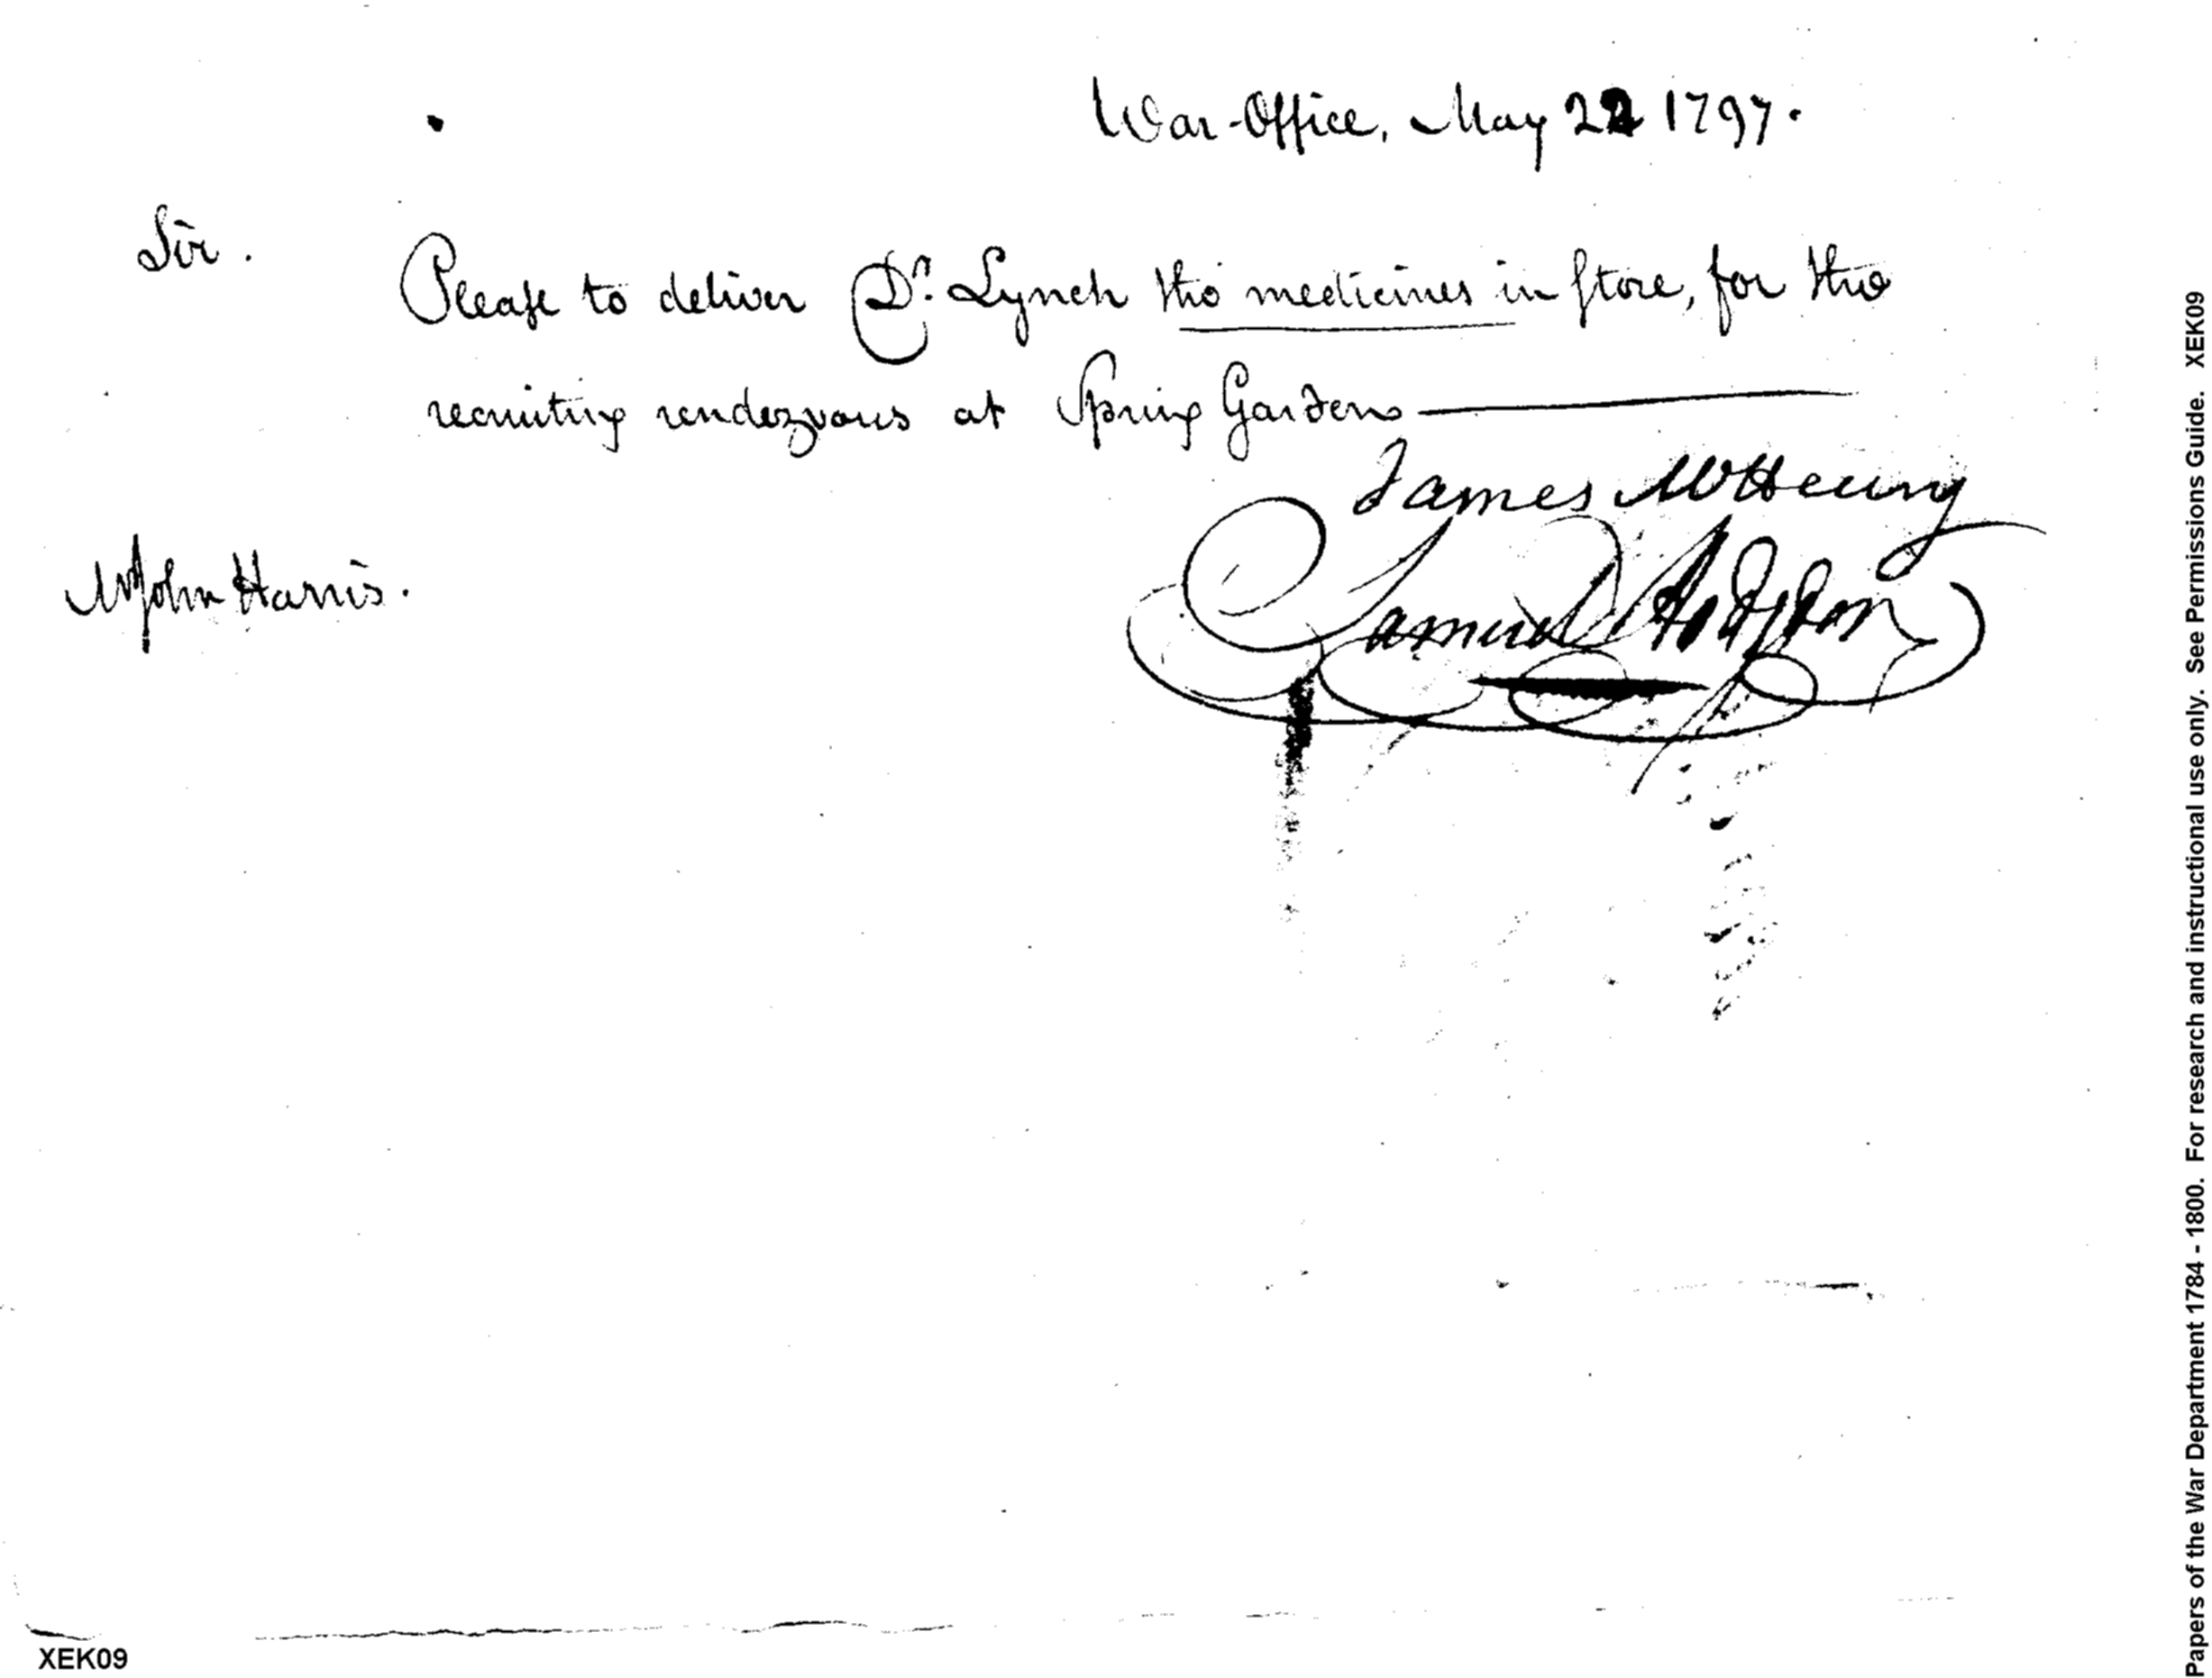 War-Office, May 22 1797.
Sir.
Please to deliver Dr. Lynch the medicines in store, for the
recruiting rendezvous at Spring Gardens
James McHenry
Samuel Hodgdon
Mr John Harris.
XEK09
Papers of the War Department 1784 - 1800. For research and instructional use only. See Permissions Guide. XEK09